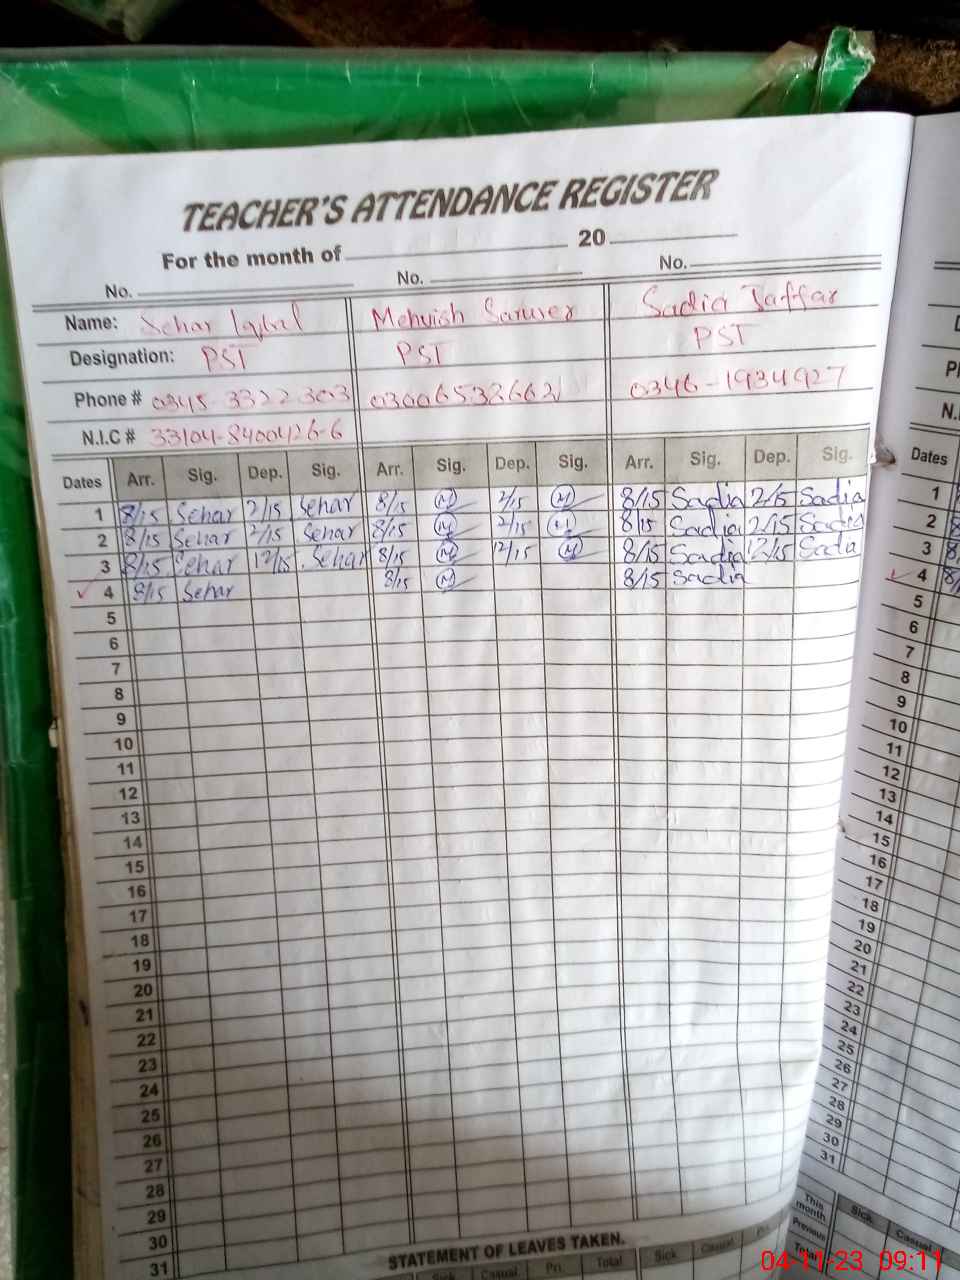 TEACHER'S ATTENDANCE REGISTER
For the month of 20
No. No. No.
Name: Sehar Iqbal Mehvish Sarwer Sadia Jaffar
Designation: PST PST PST
Phone # 0345-3322303 03006532662 0346-1934927
N.I.C # 33104-8400426-6 N.I.
Dates Arr. Sig. Dep. Sig. Arr. Sig. Dep. Sig. Arr. Sig. Dep. Sig. Dates
1 8/15 Sehar 2/15 Sehar 8/15 M 2/15 M 8/15 Sadia 2/15 Sadia 1
2 8/15 Sehar 2/15 Sehar 8/15 M 2/15 M 8/15 Sadia 2/15 Sadia 2
3 8/15 Sehar 12/15 Sehar 8/15 M 12/15 M 8/15 Sadia 12/15 Sadia 3
4 8/15 Sehar 8/15 M 8/15 Sadia 4
5 5
6 6
7 7
8 8
9 9
10 10
11 11
12 12
13 13
14 14
15 15
16 16
17 17
18 18
19 19
20 20
21 21
22 22
23 23
24 24
25 25
26 26
27 27
28 28
29 29
30 30
31 31
STATEMENT OF LEAVES TAKEN.
Sick Casual Pri. Total Sick Casual
This month
Previous
Total
Sick Casual
04-11-23 09:11